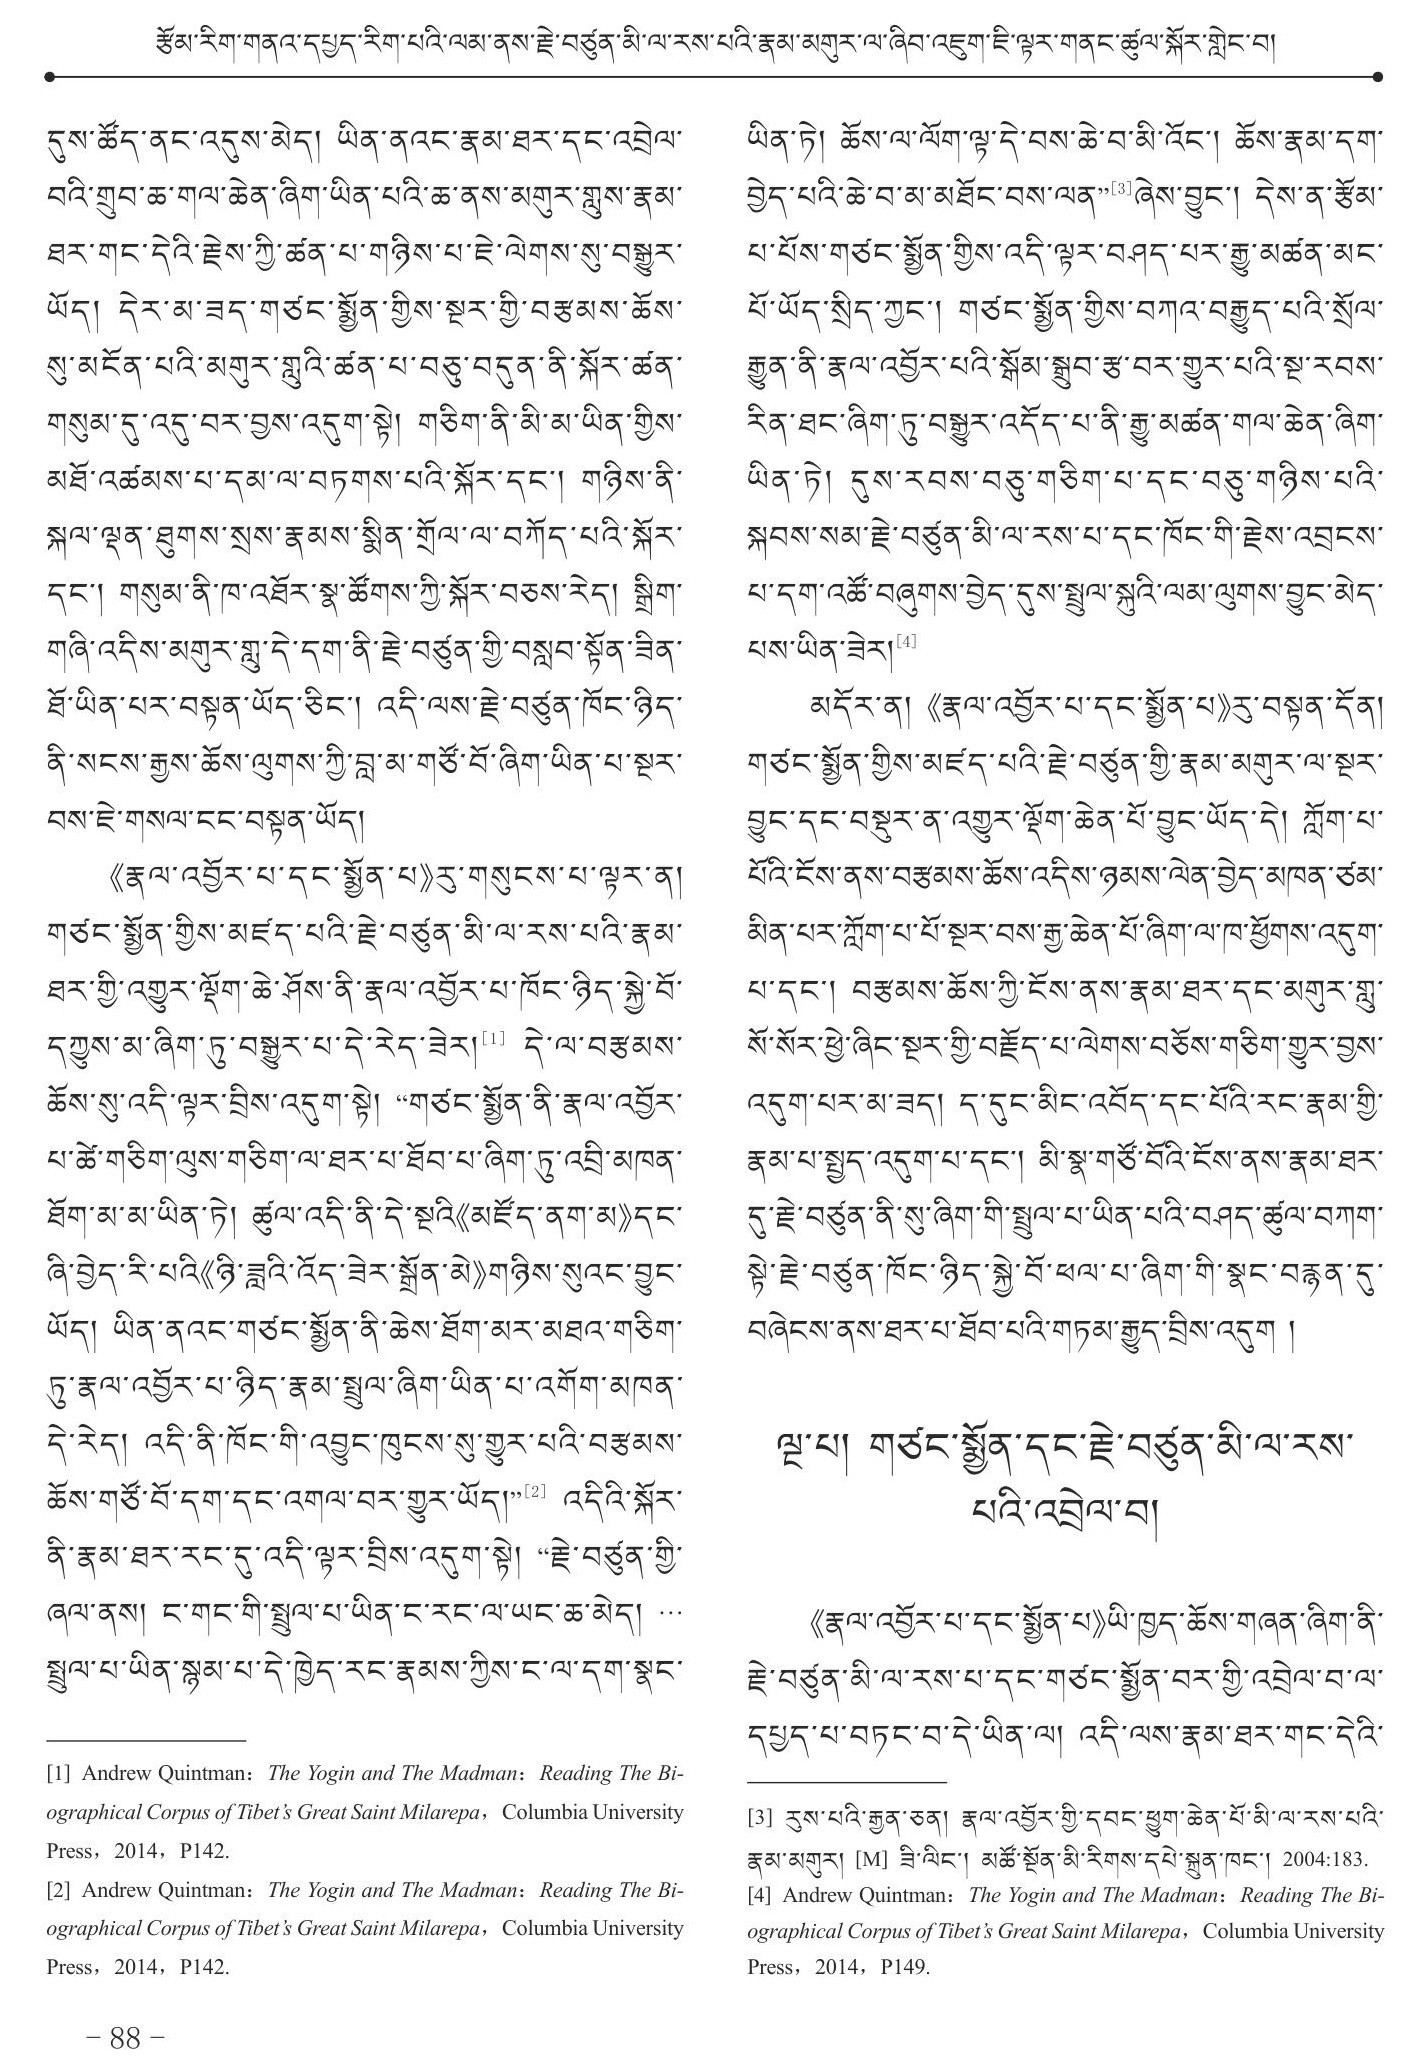 རྩོམ་རིག་གནའ་དཔྱད་རིག་པའི་ལམ་ནས་རྗེ་བཙུན་མི་ལ་རས་པའི་རྣམ་མགུར་ལ་ཞིབ་འཇུག་ཇི་ལྟར་གནང་ཚུལ་སྐོར་གླེང་བ།
དུས་ཚོད་ནང་འདུས་མེད། ཡིན་ནའང་རྣམ་ཐར་དང་འབྲེལ་
བའི་གྲུབ་ཆ་གལ་ཆེན་ཞིག་ཡིན་པའི་ཆ་ནས་མགུར་གླུས་རྣམ་
ཐར་གང་དེའི་རྗེས་ཀྱི་ཚན་པ་གཉིས་པ་ཇེ་ལེགས་སུ་བསྒྱུར་
ཡོད། དེར་མ་ཟད་གཙང་སྨྱོན་གྱིས་སྔར་གྱི་བརྩམས་ཆོས་
སུ་མངོན་པའི་མགུར་གླུའི་ཚན་པ་བཅུ་བདུན་ནི་སྐོར་ཚན་
གསུམ་དུ་འདུ་བར་བྱས་འདུག་སྟེ། གཅིག་ནི་མི་མ་ཡིན་གྱིས་
མཐོ་འཚམས་པ་དམ་ལ་བཏགས་པའི་སྐོར་དང་། གཉིས་ནི་
སྐལ་ལྡན་ཐུགས་སྲས་རྣམས་སྨིན་གྲོལ་ལ་བཀོད་པའི་སྐོར་
དང་། གསུམ་ནི་ཁ་འཐོར་སྣ་ཚོགས་ཀྱི་སྐོར་བཅས་རེད། སྒྲིག་
གཞི་འདིས་མགུར་གླུ་དེ་དག་ནི་རྗེ་བཙུན་གྱི་བསླབ་སྟོན་ཟིན་
ཐོ་ཡིན་པར་བསྟན་ཡོད་ཅིང་། འདི་ལས་རྗེ་བཙུན་ཁོང་ཉིད་
ནི་སངས་རྒྱས་ཆོས་ལུགས་ཀྱི་བླ་མ་གཙོ་བོ་ཞིག་ཡིན་པ་སྔར་
བས་ཇེ་གསལ་ངང་བསྟན་ཡོད།
《རྣལ་འབྱོར་པ་དང་སྨྱོན་པ》རུ་གསུངས་པ་ལྟར་ན།
གཙང་སྨྱོན་གྱིས་མཛད་པའི་རྗེ་བཙུན་མི་ལ་རས་པའི་རྣམ་
ཐར་གྱི་འགྱུར་ལྡོག་ཆེ་ཤོས་ནི་རྣལ་འབྱོར་པ་ཁོང་ཉིད་སྐྱེ་བོ་
དཀྱུས་མ་ཞིག་ཏུ་བསྒྱུར་པ་དེ་རེད་ཟེར།[1] དེ་ལ་བརྩམས་
ཆོས་སུ་འདི་ལྟར་བྲིས་འདུག་སྟེ། “གཙང་སྨྱོན་ནི་རྣལ་འབྱོར་
པ་ཚེ་གཅིག་ལུས་གཅིག་ལ་ཐར་པ་ཐོབ་པ་ཞིག་ཏུ་འབྲི་མཁན་
ཐོག་མ་མ་ཡིན་ཏེ། ཚུལ་འདི་ནི་དེ་སྔའི《མཛོད་ནག་མ》དང་
ཞི་བྱེད་རི་པའི《ཉི་ཟླའི་འོད་ཟེར་སྒྲོན་མེ》གཉིས་སུའང་བྱུང་
ཡོད། ཡིན་ནའང་གཙང་སྨྱོན་ནི་ཆེས་ཐོག་མར་མཐའ་གཅིག་
ཏུ་རྣལ་འབྱོར་པ་ཉིད་རྣམ་སྤྲུལ་ཞིག་ཡིན་པ་འགོག་མཁན་
དེ་རེད། འདི་ནི་ཁོང་གི་འབྱུང་ཁུངས་སུ་གྱུར་པའི་བརྩམས་
ཆོས་གཙོ་བོ་དག་དང་འགལ་བར་གྱུར་ཡོད།”[2] འདིའི་སྐོར་
ནི་རྣམ་ཐར་རང་དུ་འདི་ལྟར་བྲིས་འདུག་སྟེ། “རྗེ་བཙུན་གྱི་
ཞལ་ནས། ང་གང་གི་སྤྲུལ་པ་ཡིན་ང་རང་ལ་ཡང་ཆ་མེད། …
སྤྲུལ་པ་ཡིན་སྙམ་པ་དེ་ཁྱེད་རང་རྣམས་ཀྱིས་ང་ལ་དག་སྣང་
[1] Andrew Quintman：The Yogin and The Madman：Reading The Bi-
ographical Corpus of Tibet’s Great Saint Milarepa，Columbia University
Press，2014，P142.
[2] Andrew Quintman：The Yogin and The Madman：Reading The Bi-
ographical Corpus of Tibet’s Great Saint Milarepa，Columbia University
Press，2014，P142.
ཡིན་ཏེ། ཆོས་ལ་ལོག་ལྟ་དེ་བས་ཆེ་བ་མི་འོང་། ཆོས་རྣམ་དག་
བྱེད་པའི་ཆེ་བ་མ་མཐོང་བས་ལན”[3]ཞེས་བྱུང་། དེས་ན་རྩོམ་
པ་པོས་གཙང་སྨྱོན་གྱིས་འདི་ལྟར་བཤད་པར་རྒྱུ་མཚན་མང་
པོ་ཡོད་སྲིད་ཀྱང་། གཙང་སྨྱོན་གྱིས་བཀའ་བརྒྱུད་པའི་སྲོལ་
རྒྱུན་ནི་རྣལ་འབྱོར་པའི་སྒོམ་སྒྲུབ་རྩ་བར་གྱུར་པའི་སྔ་རབས་
རིན་ཐང་ཞིག་ཏུ་བསྒྱུར་འདོད་པ་ནི་རྒྱུ་མཚན་གལ་ཆེན་ཞིག་
ཡིན་ཏེ། དུས་རབས་བཅུ་གཅིག་པ་དང་བཅུ་གཉིས་པའི་
སྐབས་སམ་རྗེ་བཙུན་མི་ལ་རས་པ་དང་ཁོང་གི་རྗེས་འབྲངས་
པ་དག་འཚོ་བཞུགས་བྱེད་དུས་སྤྲུལ་སྐུའི་ལམ་ལུགས་བྱུང་མེད་
པས་ཡིན་ཟེར།[4]
མདོར་ན། 《རྣལ་འབྱོར་པ་དང་སྨྱོན་པ》རུ་བསྟན་དོན།
གཙང་སྨྱོན་གྱིས་མཛད་པའི་རྗེ་བཙུན་གྱི་རྣམ་མགུར་ལ་སྔར་
བྱུང་དང་བསྡུར་ན་འགྱུར་ལྡོག་ཆེན་པོ་བྱུང་ཡོད་དེ། ཀློག་པ་
པོའི་ངོས་ནས་བརྩམས་ཆོས་འདིས་ཉམས་ལེན་བྱེད་མཁན་ཙམ་
མིན་པར་ཀློག་པ་པོ་སྔར་བས་རྒྱ་ཆེན་པོ་ཞིག་ལ་ཁ་ཕྱོགས་འདུག་
པ་དང་། བརྩམས་ཆོས་ཀྱི་ངོས་ནས་རྣམ་ཐར་དང་མགུར་གླུ་
སོ་སོར་ཕྱེ་ཞིང་སྔར་གྱི་བརྗོད་པ་ལེགས་བཅོས་གཅིག་གྱུར་བྱས་
འདུག་པར་མ་ཟད། ད་དུང་མིང་འབོད་དང་པོའི་རང་རྣམ་གྱི་
རྣམ་པ་སྤྱད་འདུག་པ་དང་། མི་སྣ་གཙོ་བོའི་ངོས་ནས་རྣམ་ཐར་
དུ་རྗེ་བཙུན་ནི་སུ་ཞིག་གི་སྤྲུལ་པ་ཡིན་པའི་བཤད་ཚུལ་བཀག་
སྟེ་རྗེ་བཙུན་ཁོང་ཉིད་སྐྱེ་བོ་ཕལ་པ་ཞིག་གི་སྣང་བརྙན་དུ་
བཞེངས་ནས་ཐར་པ་ཐོབ་པའི་གཏམ་རྒྱུད་བྲིས་འདུག །
ལྔ་པ། གཙང་སྨྱོན་དང་རྗེ་བཙུན་མི་ལ་རས་
པའི་འབྲེལ་བ།
《རྣལ་འབྱོར་པ་དང་སྨྱོན་པ》ཡི་ཁྱད་ཆོས་གཞན་ཞིག་ནི་
རྗེ་བཙུན་མི་ལ་རས་པ་དང་གཙང་སྨྱོན་བར་གྱི་འབྲེལ་བ་ལ་
དཔྱད་པ་བཏང་བ་དེ་ཡིན་ལ། འདི་ལས་རྣམ་ཐར་གང་དེའི་
[3] རུས་པའི་རྒྱན་ཅན། རྣལ་འབྱོར་གྱི་དབང་ཕྱུག་ཆེན་པོ་མི་ལ་རས་པའི་
རྣམ་མགུར། [M] ཟི་ལིང་། མཚོ་སྔོན་མི་རིགས་དཔེ་སྐྲུན་ཁང་། 2004:183.
[4] Andrew Quintman：The Yogin and The Madman：Reading The Bi-
ographical Corpus of Tibet’s Great Saint Milarepa，Columbia University
Press，2014，P149.
– 88 –